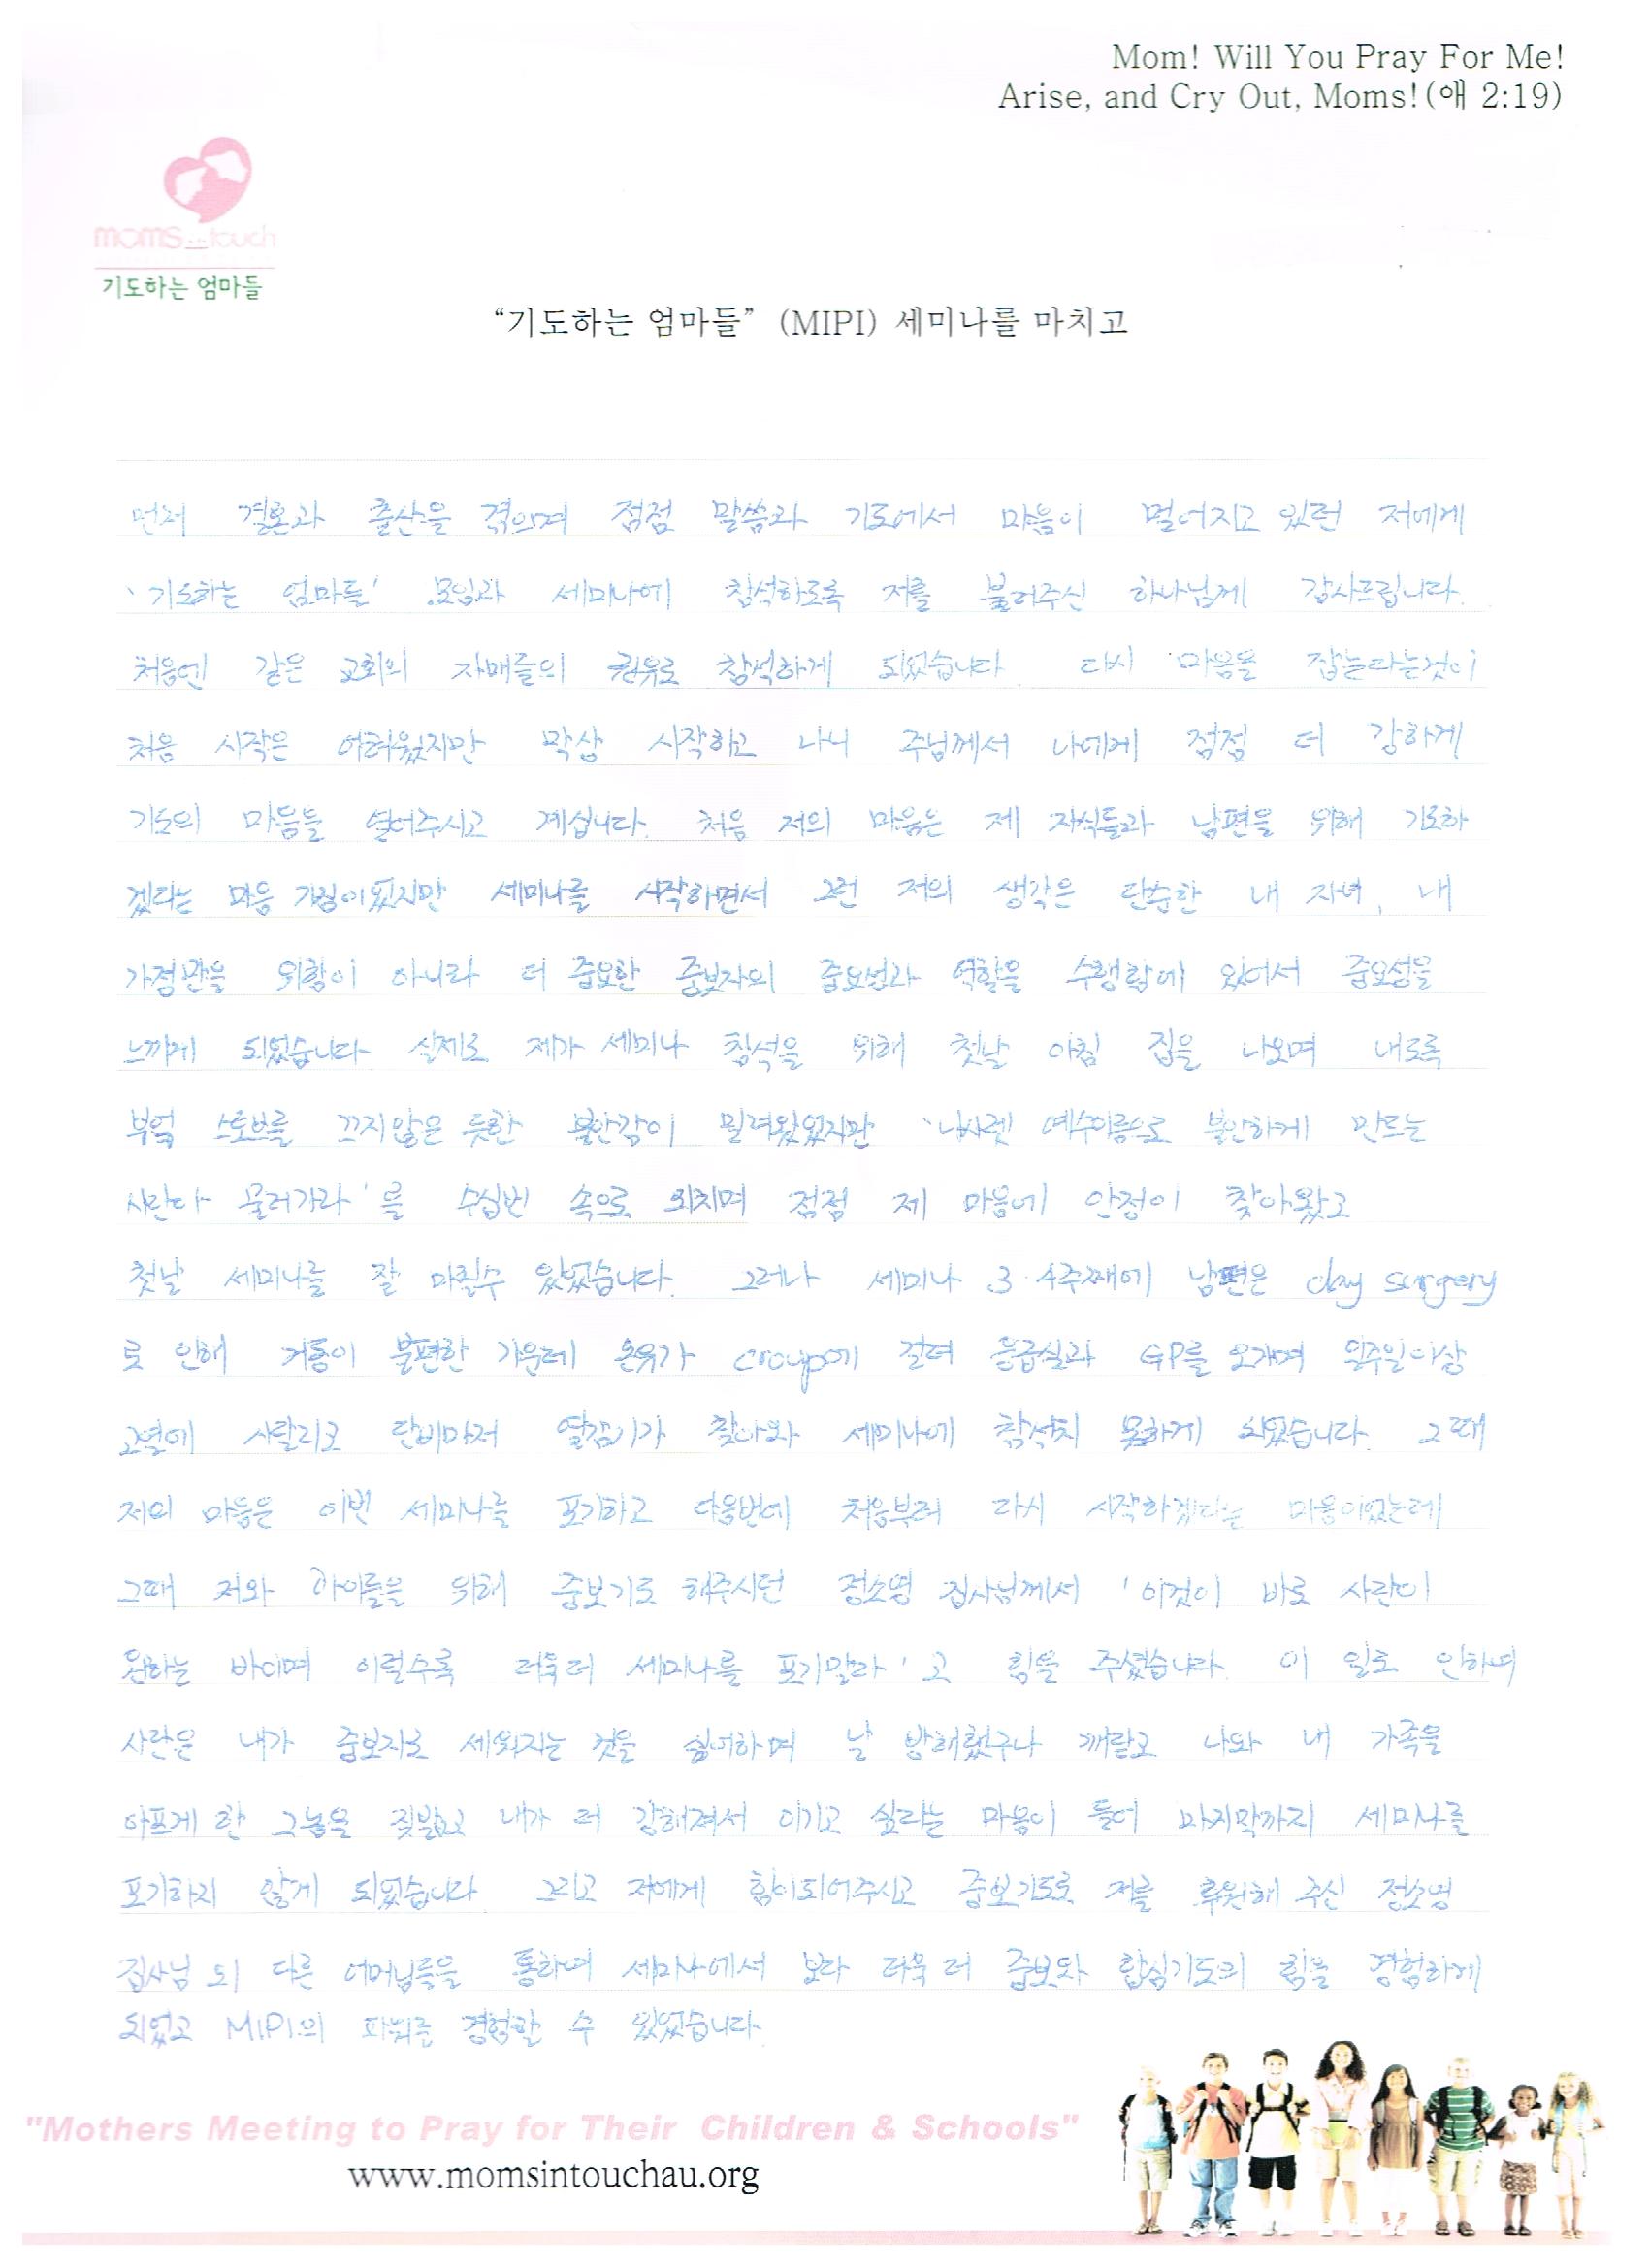 Mom! Will You Pray For Me!
Arise, and Cry Out, Moms!(애 2:19)
moms in touch
기도하는 엄마들
“기도하는 엄마들” (MIPI) 세미나를 마치고
먼저 결혼과 출산을 겪으며 점점 말씀과 기도에서 마음이 멀어지고 있던 저에게
'기도하는 엄마들' 모임과 세미나에 참석하도록 저를 불러주신 하나님께 감사드립니다.
처음엔 같은 교회의 자매들의 권유로 참석하게 되었습니다. 다시 마음을 잡는다는것이
처음 시작은 어려웠지만 막상 시작하고 나니 주님께서 나에게 점점 더 강하게
기도의 마음들 열어주시고 계십니다. 처음 저의 마음은 제 자식들과 남편을 위해 기도하
겠다는 마음 가짐이었지만 세미나를 시작하면서 그런 저의 생각은 단순한 내 자녀, 내
가정만을 위함이 아니라 더 중요한 중보자의 중요성과 역할을 수행함에 있어서 중요성을
느끼게 되었습니다. 실제로 제가 세미나 참석을 위해 첫날 아침 집을 나오며 내도록
부엌 스토브를 끄지않은 듯한 불안감이 밀려왔었지만 '나사렛 예수이름으로 불안하게 만드는
사탄아 물러가라'를 수십번 속으로 외치며 점점 제 마음에 안정이 찾아왔고
첫날 세미나를 잘 마칠수 있었습니다. 그러나 세미나 3·4주째에 남편은 day surgery
로 인해 거동이 불편한 가운데 온유가 croup에 걸려 응급실과 GP를 오가며 일주일이상
고열에 시달리고 단비마저 열감기가 찾아와 세미나에 참석치 못하게 되었습니다. 그때
저의 마음은 이번 세미나를 포기하고 다음번에 처음부터 다시 시작하겠다는 마음이었는데
그때 저와 아이들을 위해 중보기도 해주시던 정소영 집사님께서 '이것이 바로 사탄이
원하는 바이며 이럴수록 더욱더 세미나를 포기말라'고 힘을 주셨습니다. 이 일로 인하여
사탄은 내가 중보자로 세워지는 것을 싫어하며 날 방해했구나 깨닫고 나와 내 가족을
아프게 한 그놈을 짓밟고 내가 더 강해져서 이기고 싶다는 마음이 들어 마지막까지 세미나를
포기하지 않게 되었습니다. 그리고 저에게 힘이되어주시고 중보기도로 저를 후원해 주신 정소영
집사님 외 다른 어머님들을 통하여 세미나에서 보다 더욱 더 중보와 합심기도의 힘을 경험하게
되었고 MIPI의 파워를 경험할 수 있었습니다.
"Mothers Meeting to Pray for Their Children & Schools"
www.momsintouchau.org